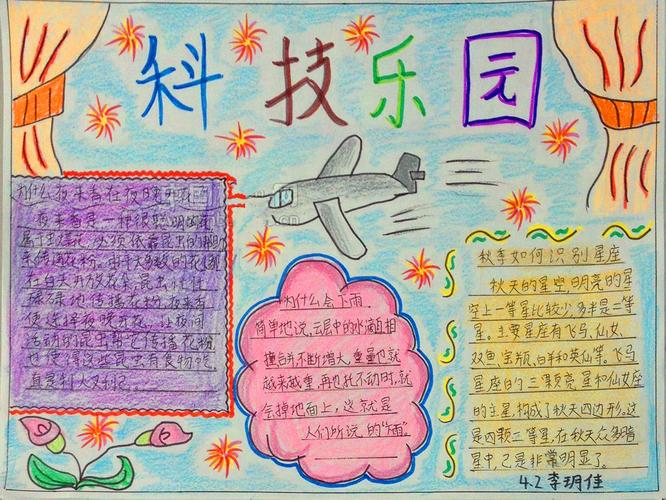 科技乐园
为什么夜来香在夜晚开花
夜来香是一种很聪明的花
属于虫媒花，必须依靠昆虫的帮助
来传播花粉。由于大多数的花
在白天开放花朵，昆虫
碌碌地传播花粉，夜来香
便选择夜晚开花，让夜间
活动的昆虫帮它传播花粉
也使得这些昆虫有食物吃
真是利人又利己
为什么会下雨
简单地说，云层中的水滴相
撞合并不断增大，重量也就
越来越重，再也托不动时，就
会掉地面上，这就是
人们所说的“雨”。
秋季如何识别星座
秋天的星空明亮的星
空上一等星比较少，多半是二等
星。主要星座有飞马、仙女、
双鱼、宝瓶、白羊和英仙等。飞马
星座的三颗亮星和仙女座
的主星，构成了秋天四边形。这
是四颗二等星，在秋天众多暗
星中，已是非常明显了。
4.2 李玥佳